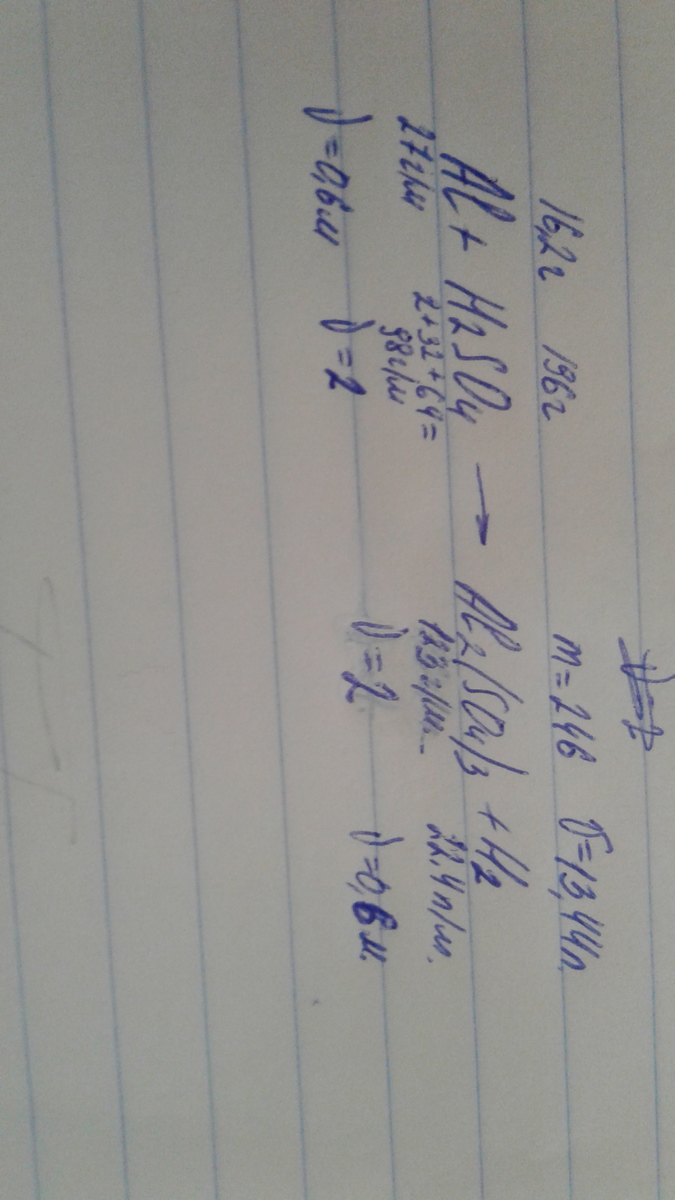 16,2г 196г m=246 V=13,44л
Al + H2SO4 → Al2(SO4)3 + H2
27г/м 2+32+64= 22,4л/м.
98г/м
ν=0,6м ν=2 ν=2 ν=0,6м.